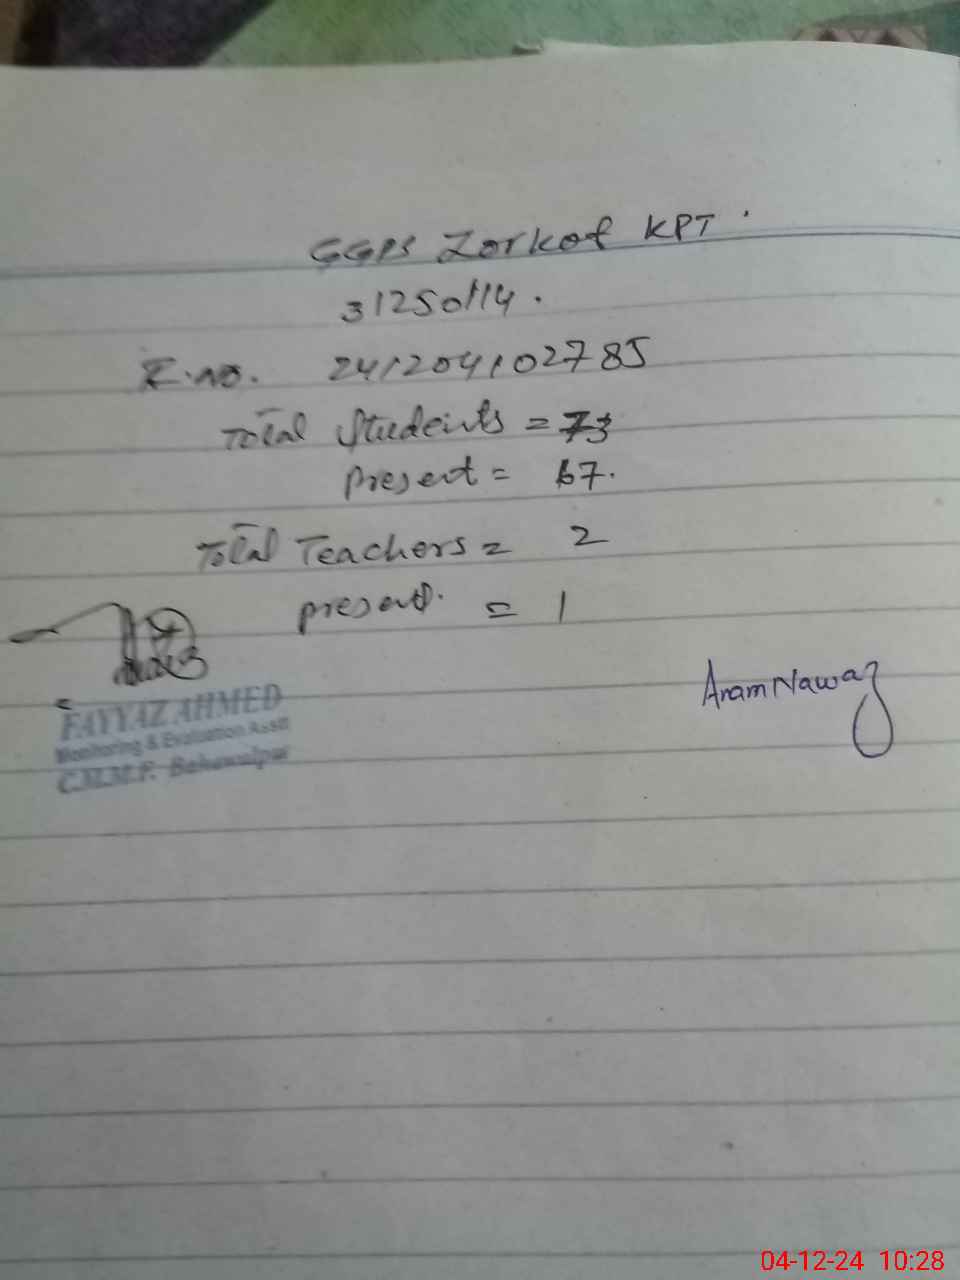 GGPS Zorkot KPT.
31250114.
E.no. 241204102785
Total Students = 73
Present = 67.
Total Teachers = 2
present. = 1
Aram Nawaz
FAYYAZ AHMED
Monitoring & Evaluation Asstt
C.M.M.F. Bahawalpur
04-12-24 10:28